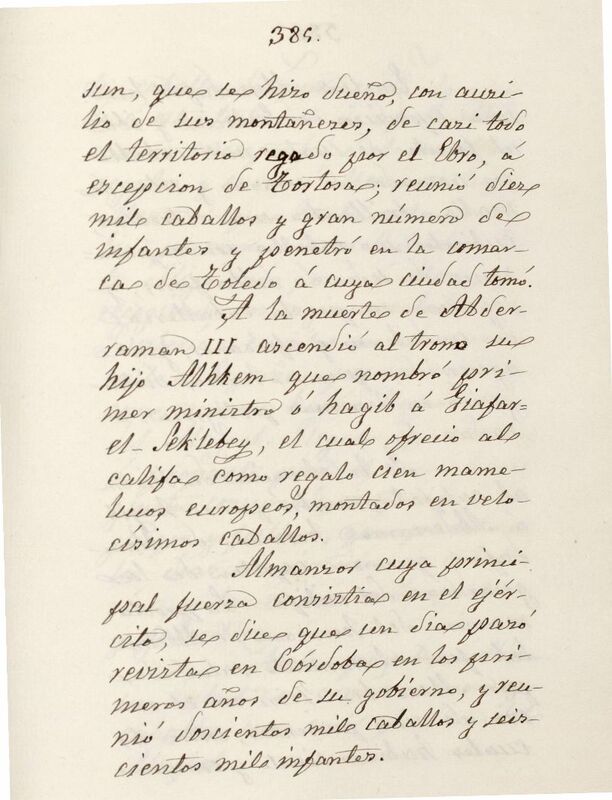 385.
sun, que se hizo dueño, con auxi-
lio de sus montañeses, de casi todo
el territorio regado por el Ebro, á
escepcion de Tortosa; reunió diez
mil caballos y gran número de
infantes y penetró en la comar-
ca de Toledo á cuya ciudad tomó.
A la muerte de Abder-
raman III ascendió al trono su
hijo Alhkem que nombró pri-
mer ministro ó hagib á Giafar-
el-Seklebey, el cual ofrecio al
califa como regalo cien mame-
lucos europeos, montados en velo-
císimos caballos.
Almanzor cuya princi-
pal fuerza consistia en el ejér-
cito, se dice que un dia pasó
revista en Córdoba en los pri-
meros años de su gobierno, y reu-
nió doscientos mil caballos y seis-
cientos mil infantes.